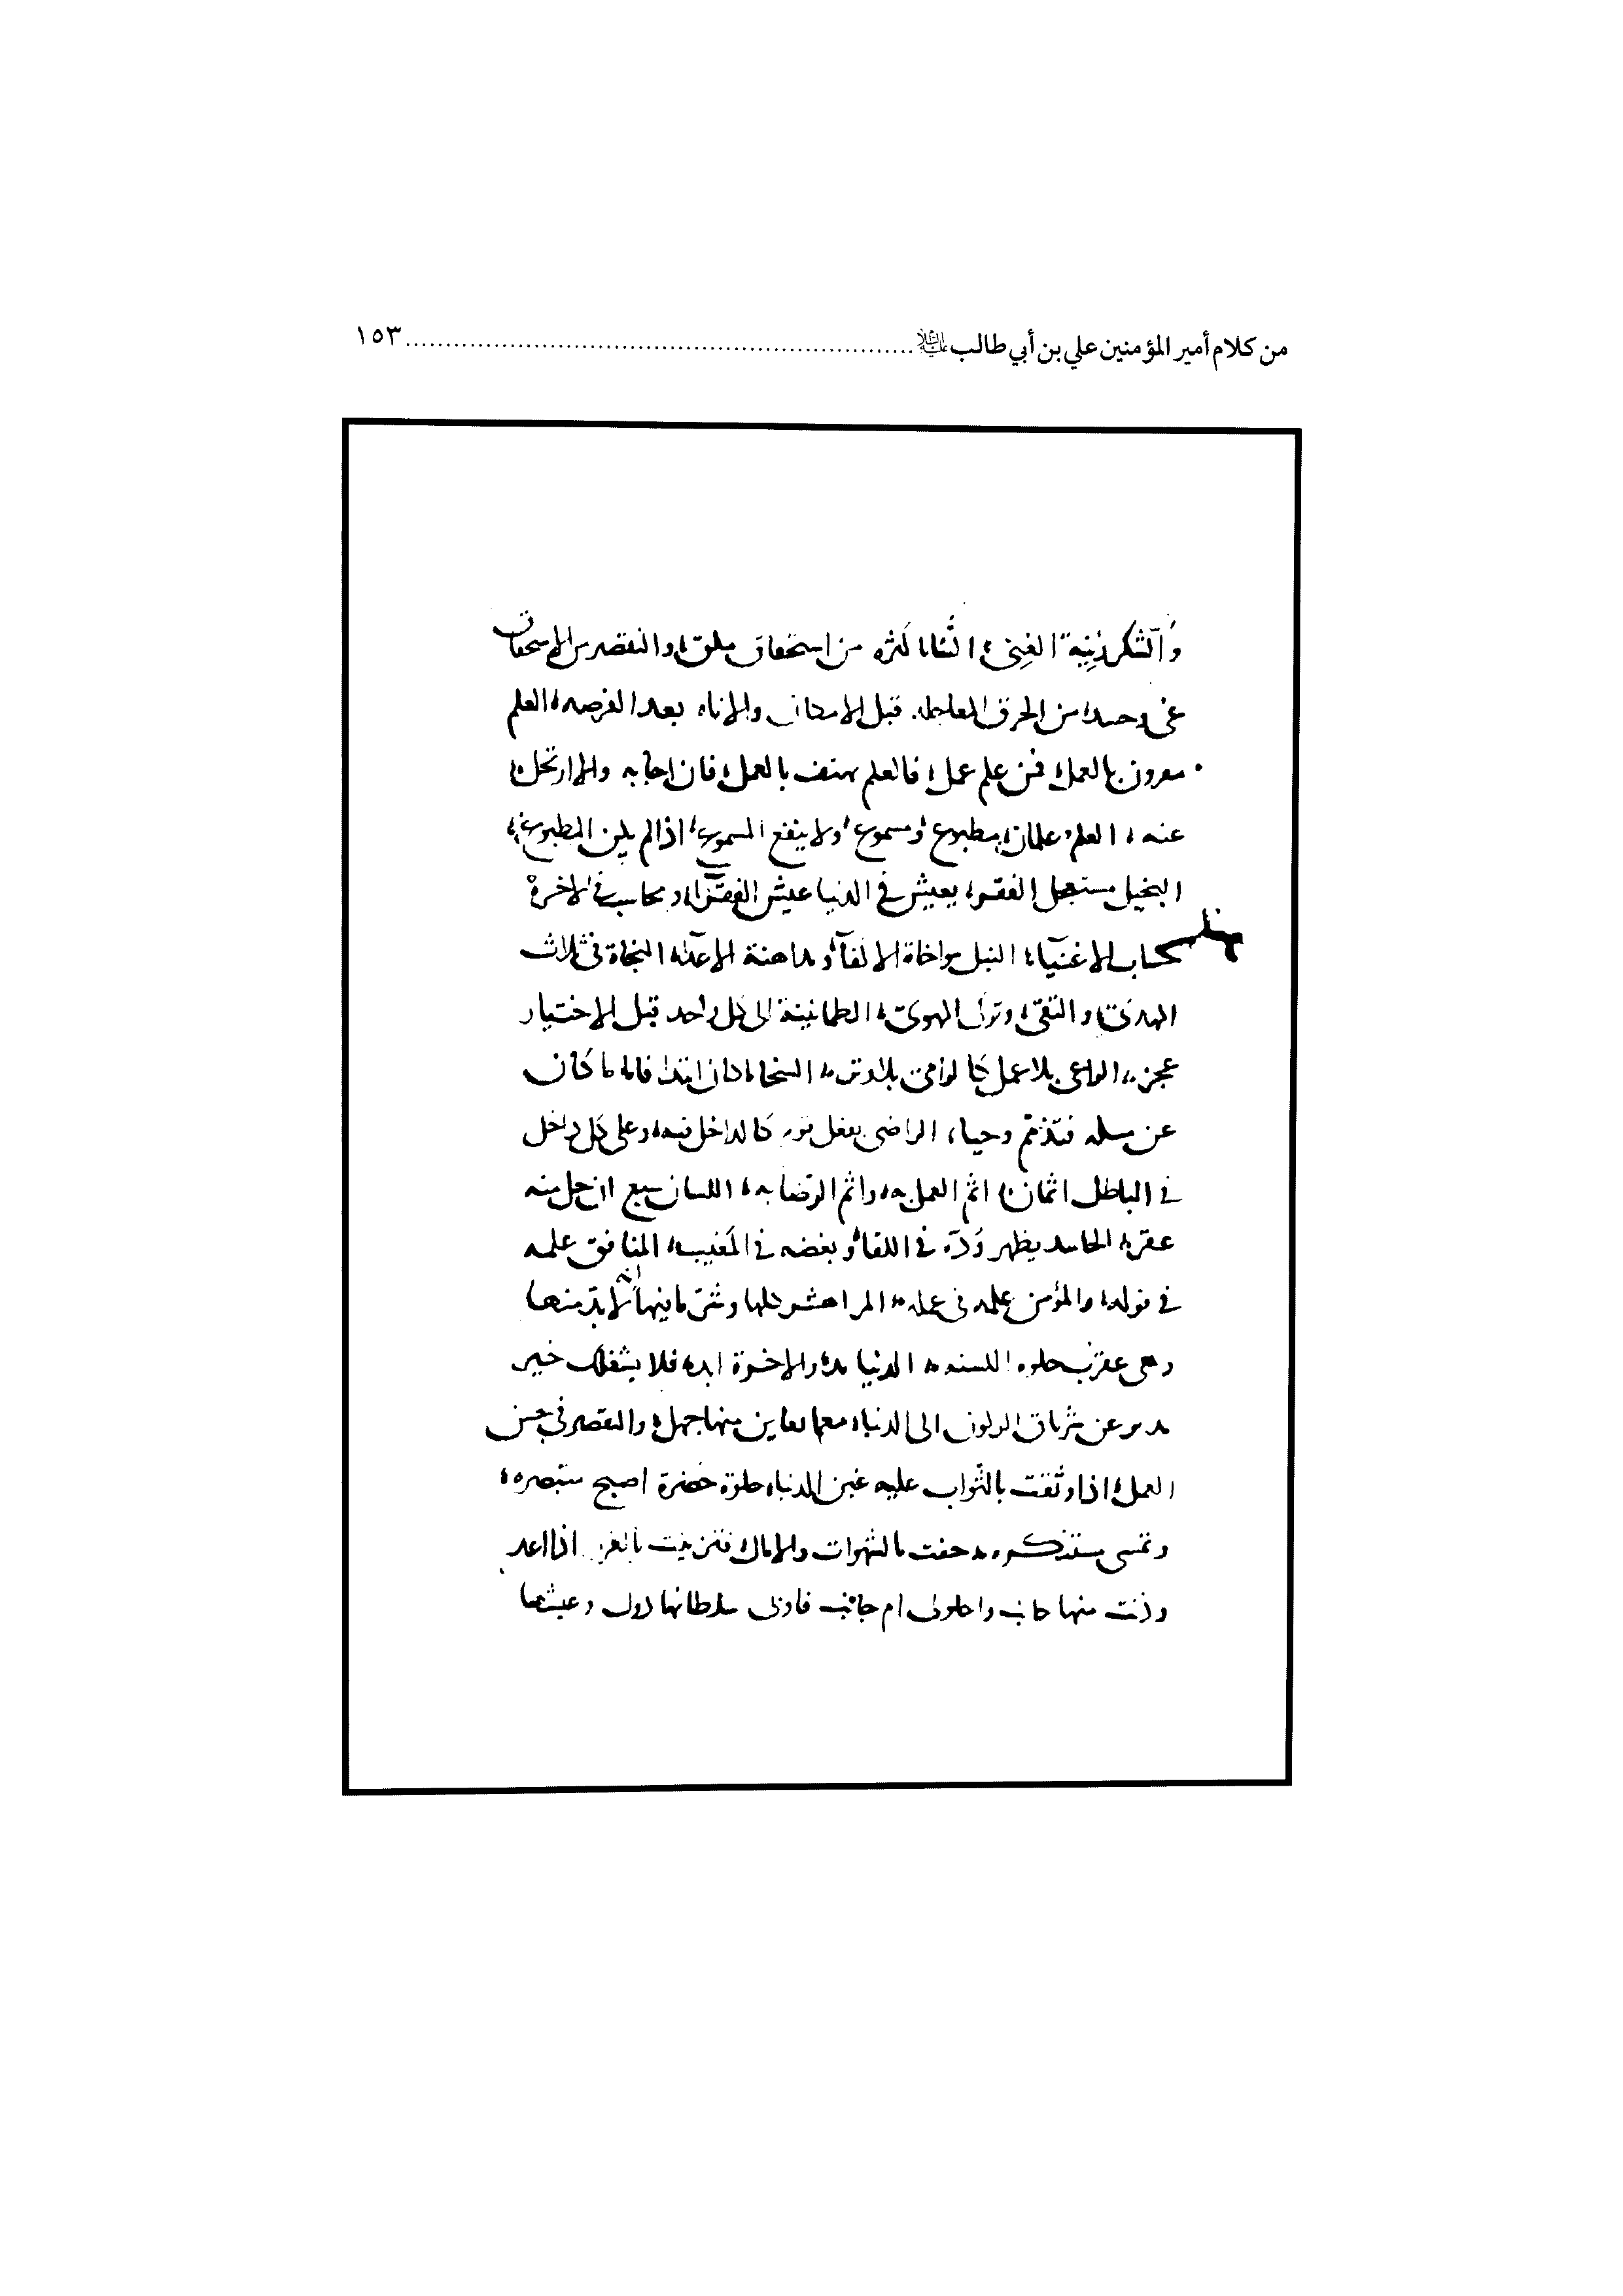 من كلام أمير المؤمنين علي بن أبي طالب عليه السلام ........ ١٥٣
وَالشكر زِينة الغِنى، الثناء اكثره من استحقاق ملق، والتقصير من الاستحقاق
عي وحسد، من الخرق المعاجله قبل الامكان والاناه بعد الفرصه، العلم
مقرون بالعمل، فمن علم عمل، فالعلم يهتف بالعمل، فان اجابه والا ارتحل
عنه، العلم علمان، مطبوع ومسموع، ولا ينفع المسموع، اذا لم يكن المطبوع،
البخيل مستعجل الفقر، يعيش في الدنيا عيش الفقرآء، ويحاسب في الاخرة
حساب الاغنيآء، النبل مواخاة الالفآء ومداهنة الاعدآء، النجاة في ثلاث
الهدى، والتقى، وترك الهوى، الطمانينة الى كل واحد قبل الاختبار
عجز، الداعى بلا عمل كالرامى بلا وتر، السخا ما كان ابتدا فاما ما كان
عن مسله فتذمم وحيا، الراضى بفعل قوم كالداخل فيه، وعلى كل داخل
في الباطل اثمان، اثم العمل به، واثم الرضا به، اللسان سبع ان خلى منه
عقر، الحاسد يظهر وُدّه في اللقآء وبغضه في المَغيب، المنافق علمه
في قوله، والمؤمن علمه في عمله، المراه شر كلها وشر ما فيها انه لا بد منها
وهي عقرب حلوه اللسنه، الدنيا والاخرة ابد، فلا يشغلك خير
عن الركون الى الدنيا، مع ما تعاين منها جهل، والتقصير في حسن
العمل، اذا وثقت بالثواب عليه غبن الدنيا، حلوة خضرة اصبح
وتمسى حفت بالشهوات والامال
منها جانب واحلولى ام جانب فاوبى سلطانها دول وعيشها